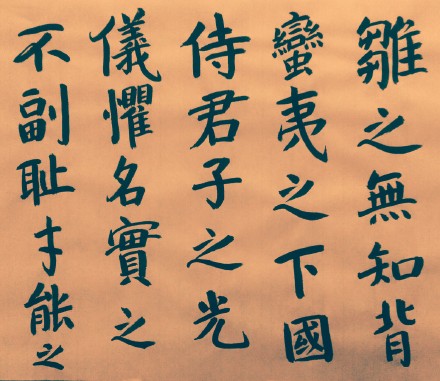 雛之無知背
蠻夷之下國
侍君子之光
儀懼名實之
不副耻才能之